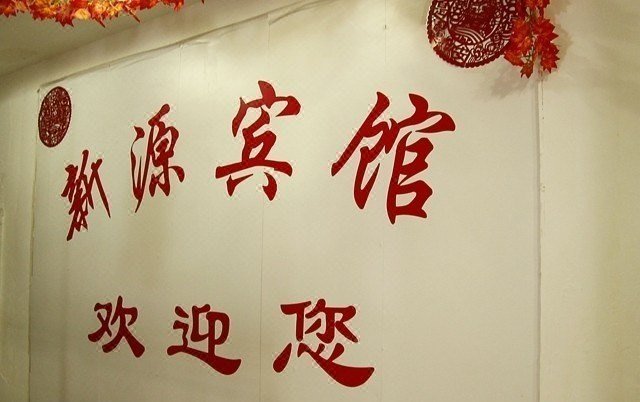 新源宾馆
欢迎您